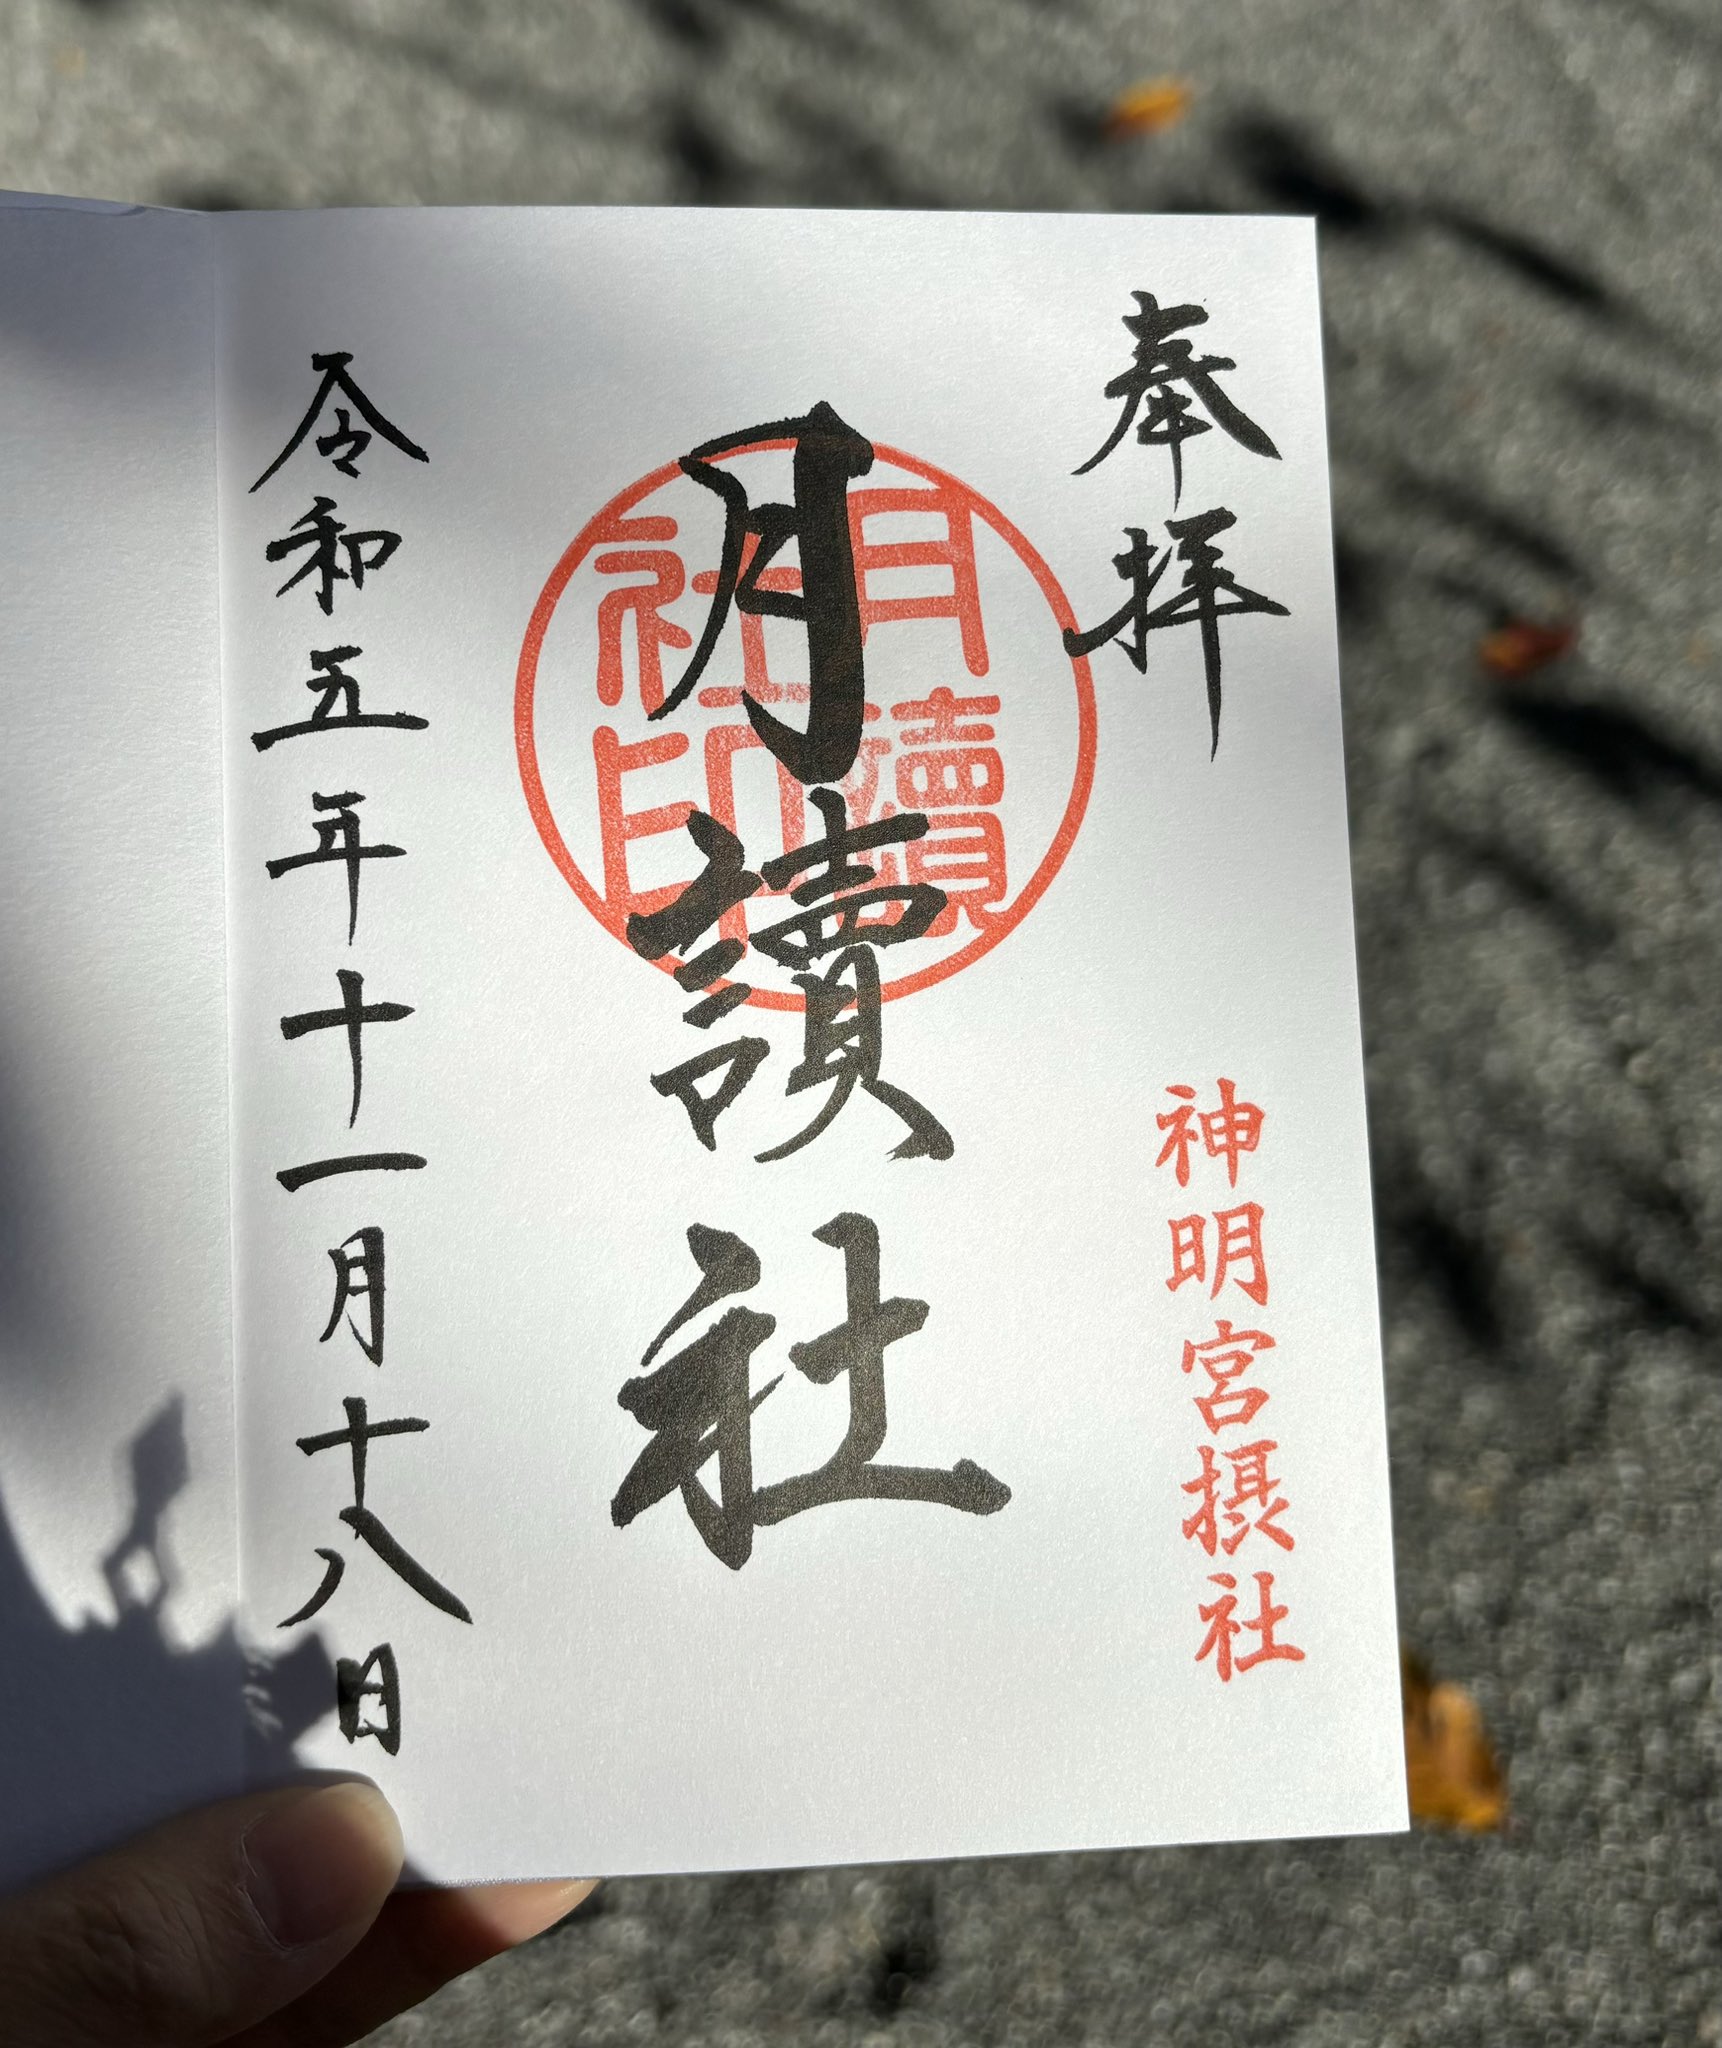 奉拝
神明宮摂社
月讀社
月讀社印
令和五年十一月十八日